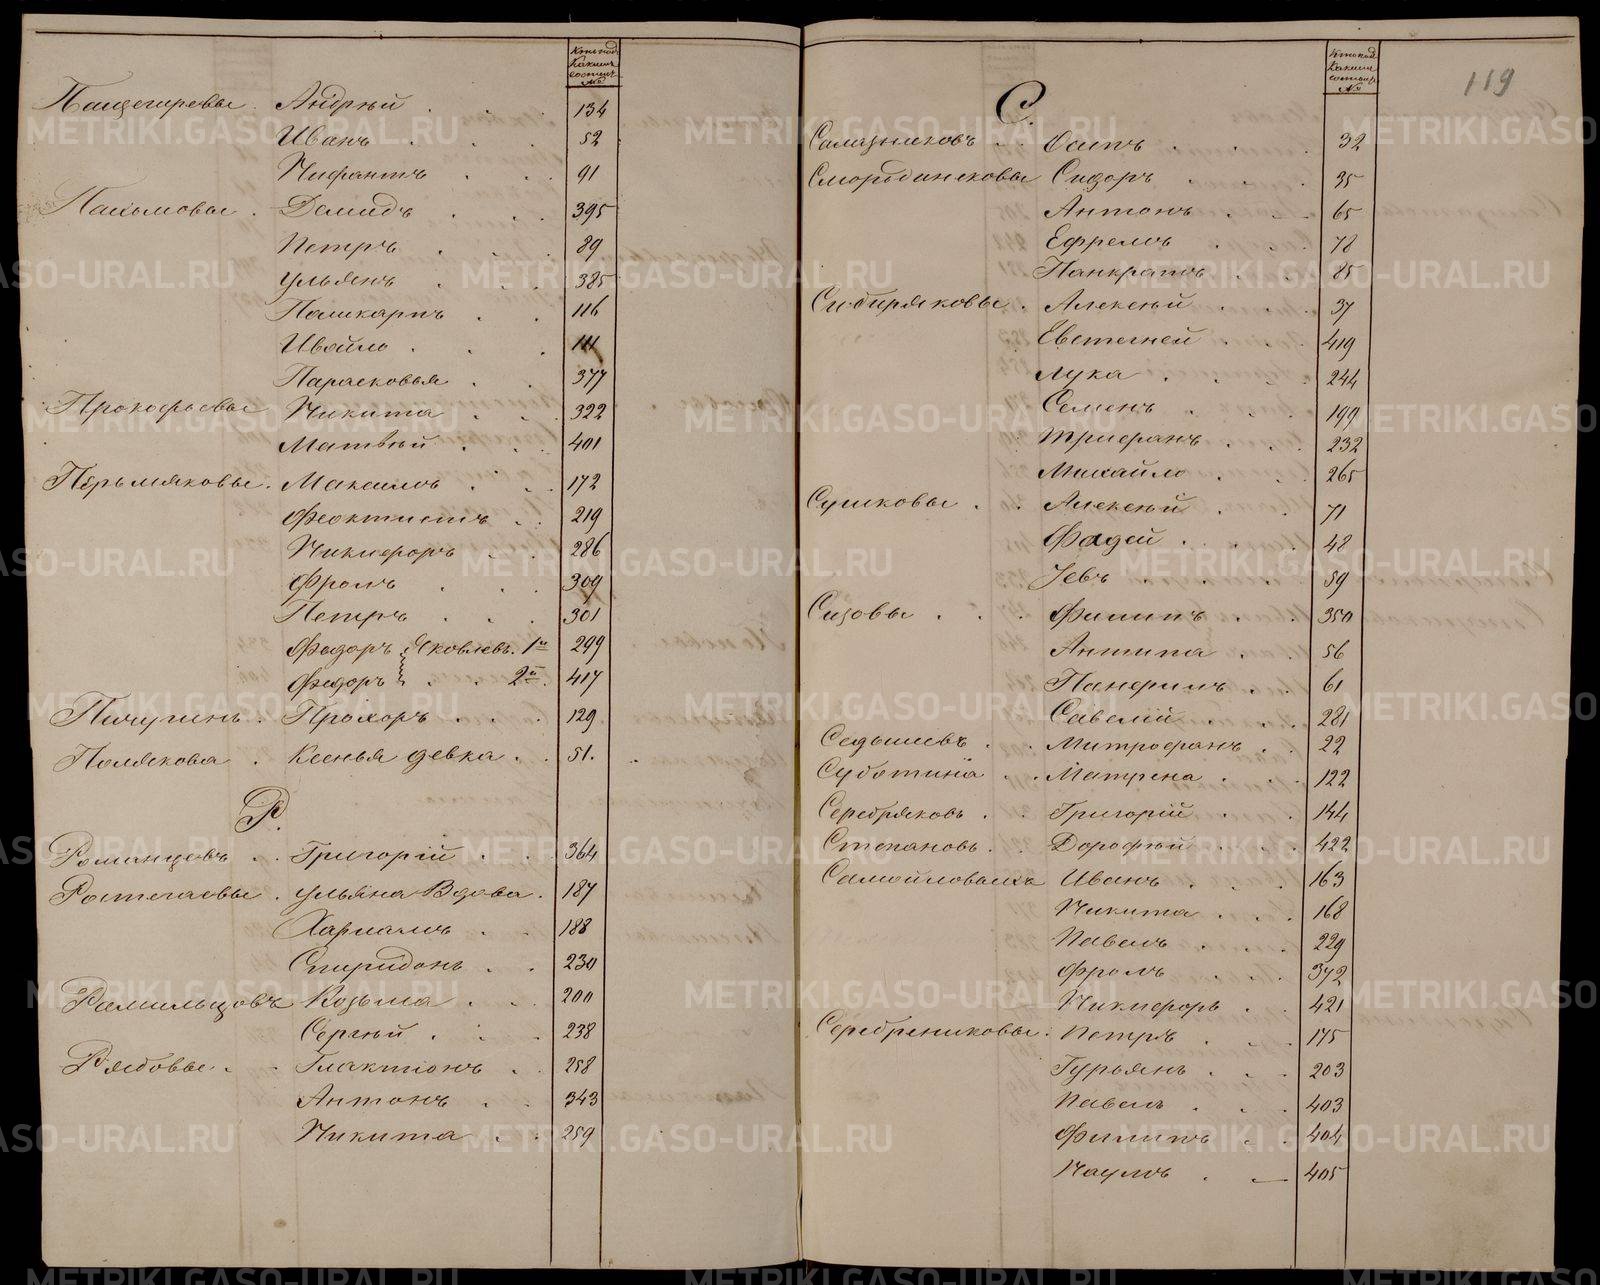 Кто под
Какимъ
состоитъ
№
Пащегоревы. Андрѣй 134
Иванъ 52
Нифантъ 91
Пахомовы. Демидъ 395
Петръ 89
Ульянъ 385
Поликарпъ 116
Ивойло 111
Парасковья 377
Прокофьевы Никита 322
Матвѣй 401
Пермяковы. Максимъ 172
Феоктистъ 219
Никифоръ 286
Фролъ 309
Петръ 301
Федоръ Яковлевъ. 1й 299
Федоръ 2й. 417
Пичугинъ. Прохоръ 129
Полякова. Ксенья девка 51.
Р.
Романцевъ. Григорій 364
Ростегаевы. Ульяна Вдова. 187
Харламъ 188
Спиридонъ 230
Рамильцовъ Козьма 200
Сергѣй 238
Рябовы. Глактіонъ 258
Антонъ 343
Никита 259
Кто под
Какимъ
состоитъ
№
119
С.
Саламзниковъ Осипъ 32
Смородинсковы Сидоръ 35
Антонъ 65
Ефремъ 78
Панкратъ 85
Сибиряковы. Алексѣй 37
Евстегней 419
Лука 244
Семенъ 199
Трифанъ 232
Михайло 265
Сушковы. Алексѣй 71
Фадей 48
Іевъ 59
Сизовы Филипъ 350
Антипа 56
Панфилъ 61
Савелій 281
Седышевъ Митрофанъ 22
Суботина Матрена 122
Серебряковъ Григорій 144
Степановъ. Дорофѣй 422
Самойловыхъ Иванъ 163
Никита 168
Павелъ 229
Фролъ 372
Никифоръ 421
Серебрениковы. Петръ 175
Гурьянъ 203
Павелъ 403
Филипъ 404
Наумъ 405
METRIKI.GASO-URAL.RU